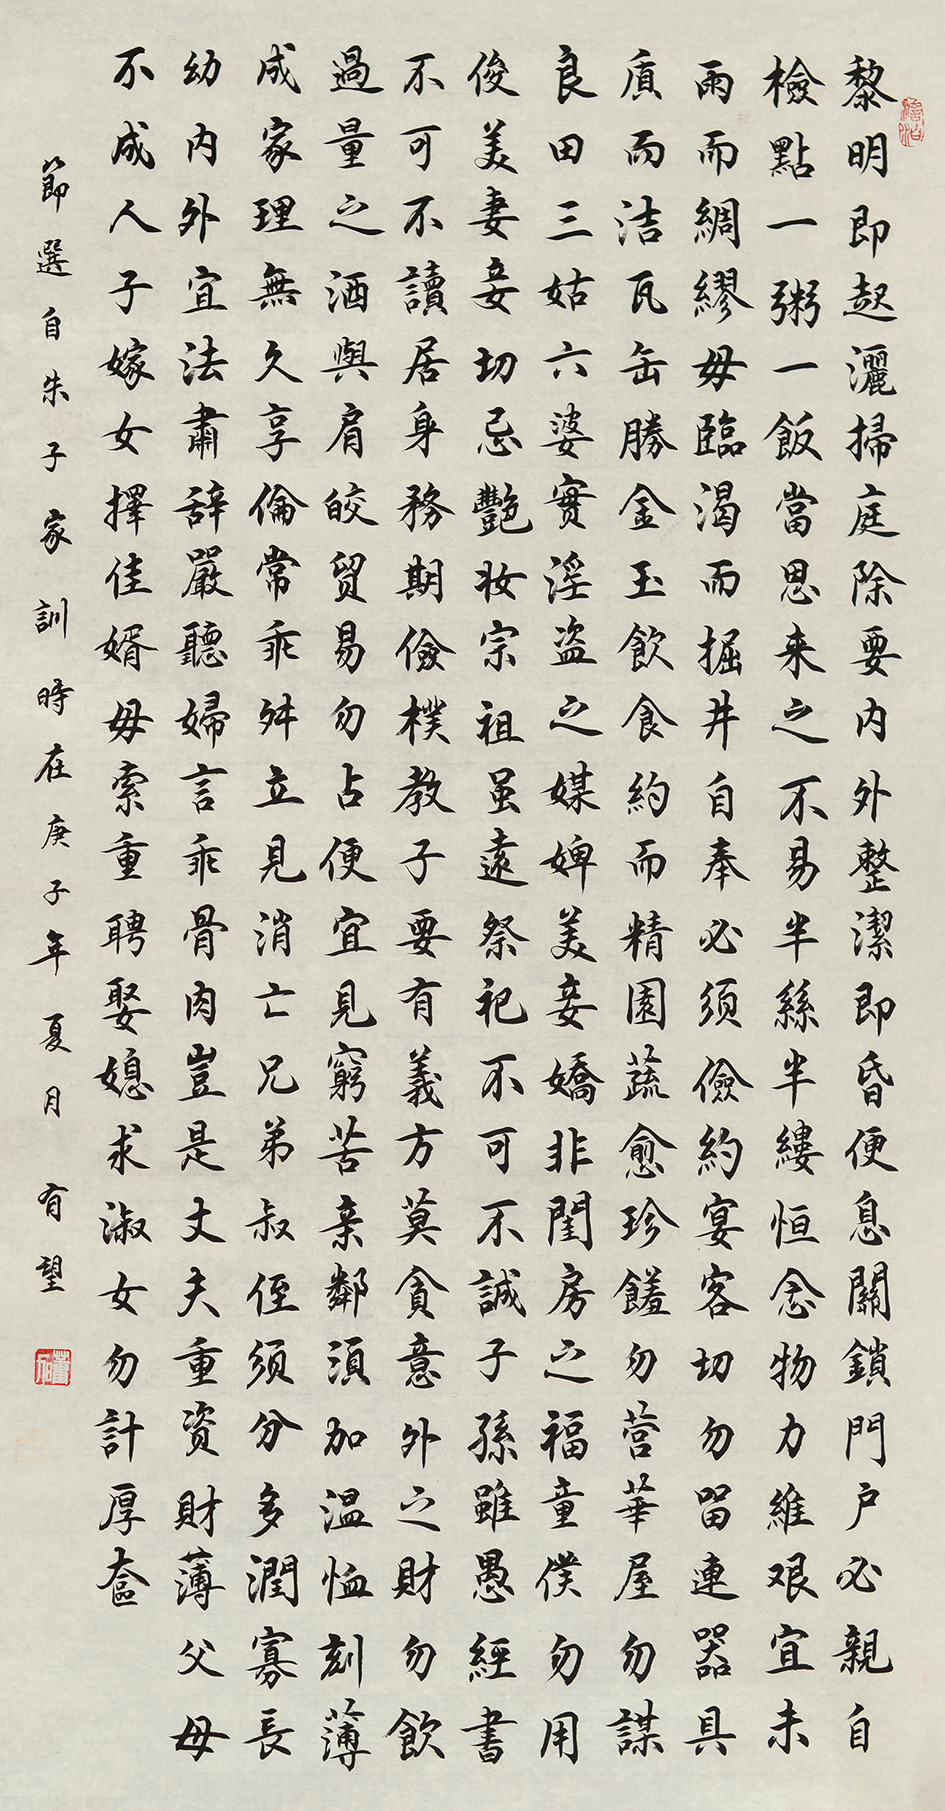 黎明即起灑掃庭除要内外整潔即昏便息關鎖門户必親自
檢點一粥一飯當思来之不易半絲半縷恒念物力維艱宜未
雨而綢繆毋臨渴而掘井自奉必須儉約宴客切勿留連器具
質而洁瓦缶勝金玉飲食約而精園蔬愈珍饈勿营華屋勿謀
良田三姑六婆實淫盗之媒婢美妾嬌非閨房之福童僕勿用
俊美妻妾切忌艷妆宗祖虽遠祭祀不可不誠子孫雖愚經書
不可不讀居身務期儉樸教子要有義方莫貪意外之財勿飲
過量之酒與肩皎貿易勿占便宜見窮苦亲鄰須加温恤刻薄
成家理無久享倫常乖舛立見消亡兄弟叔侄須分多潤寡長
幼内外宜法肅辞嚴聽婦言乖骨肉豈是丈夫重资財薄父母
不成人子嫁女擇佳婿毋索重聘娶媳求淑女勿計厚奩
節選自朱子家訓時在庚子年夏月 有望